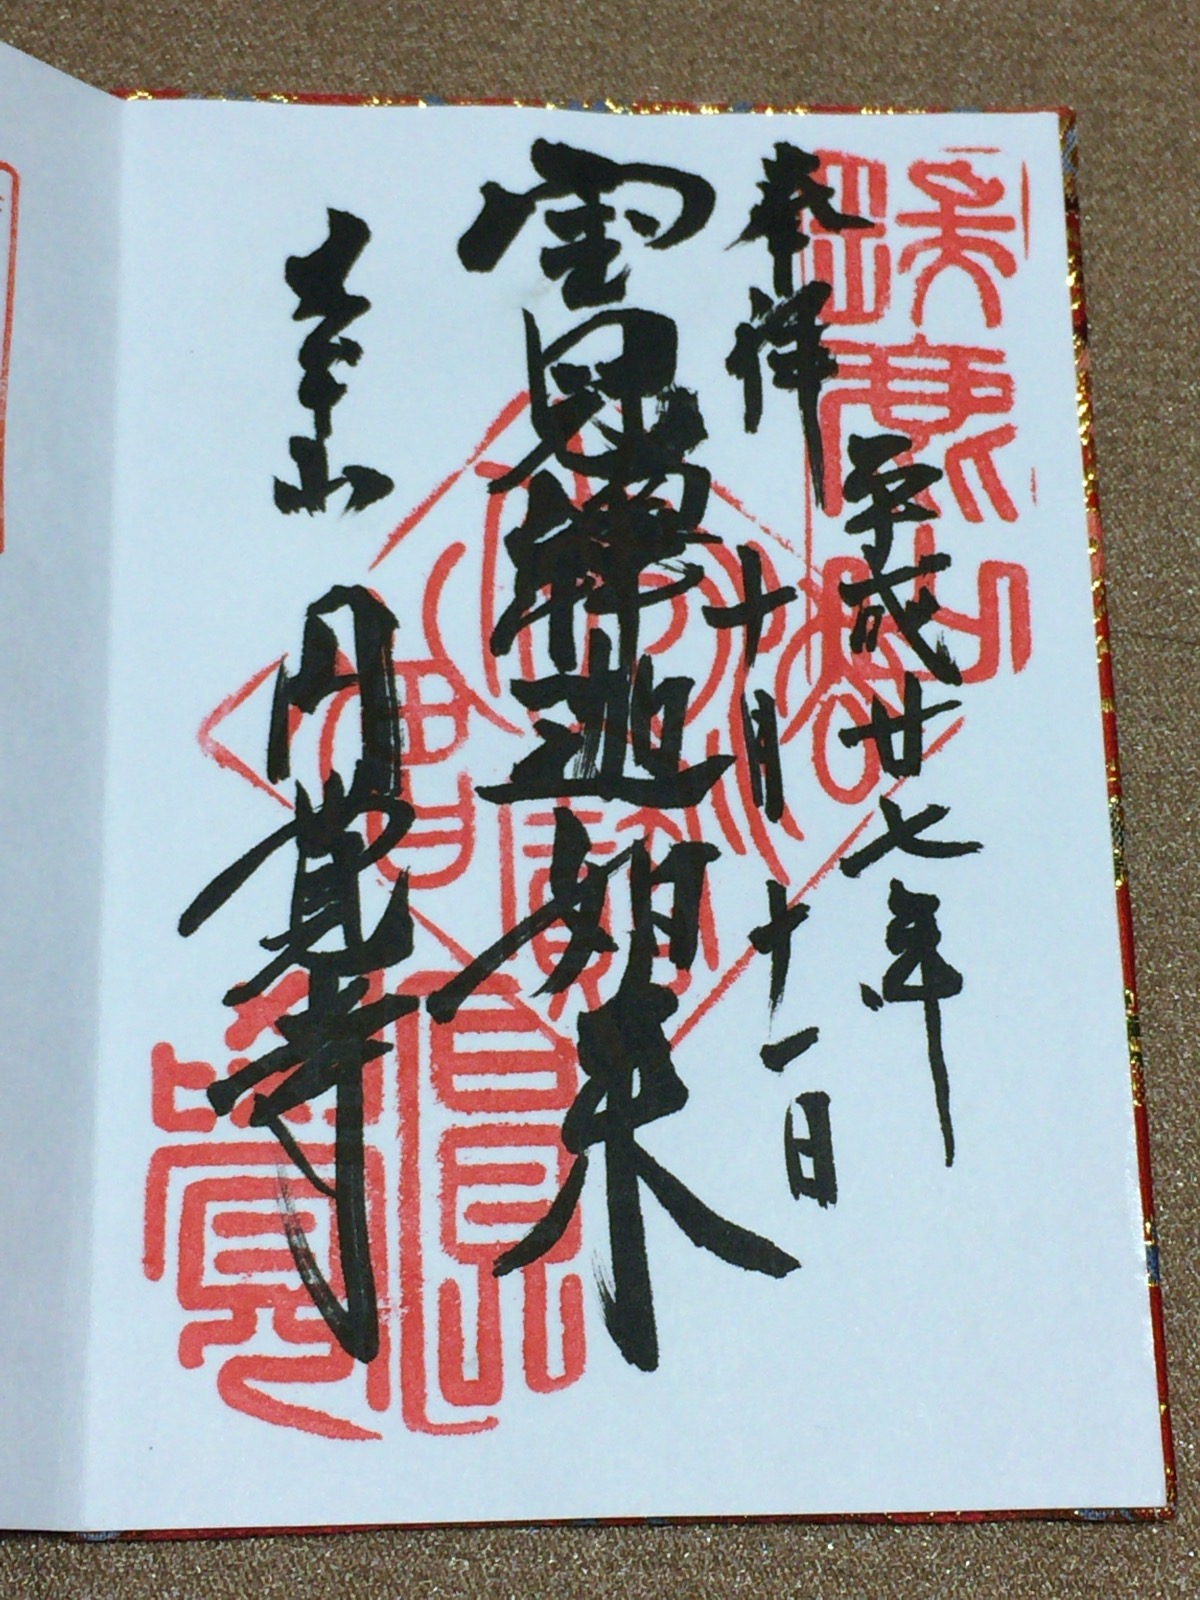 奉拝
平成廿七年
十月十一日
宝冠釋迦如来
大本山
円覚寺